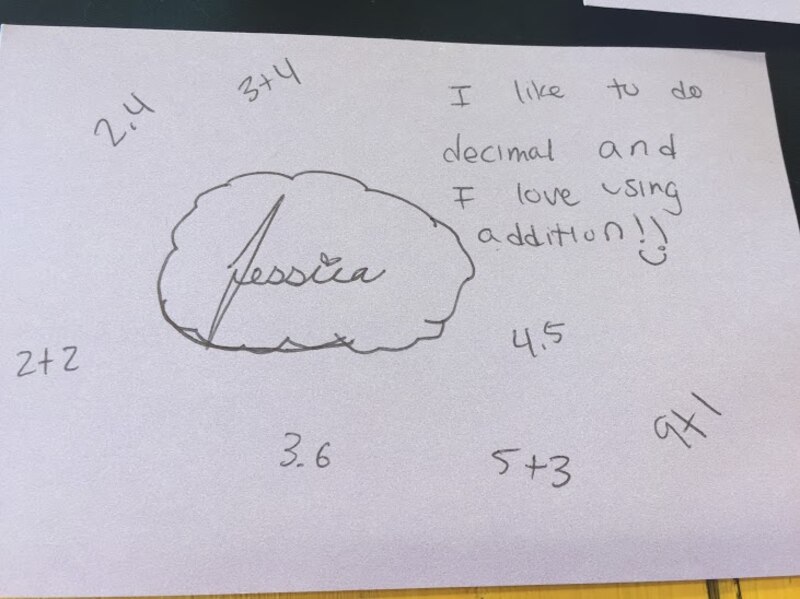 3+4
2.4
I like to do
decimal and
I love using
addition!!
Jessica
4.5
2+2
9+1
3.6
5+3